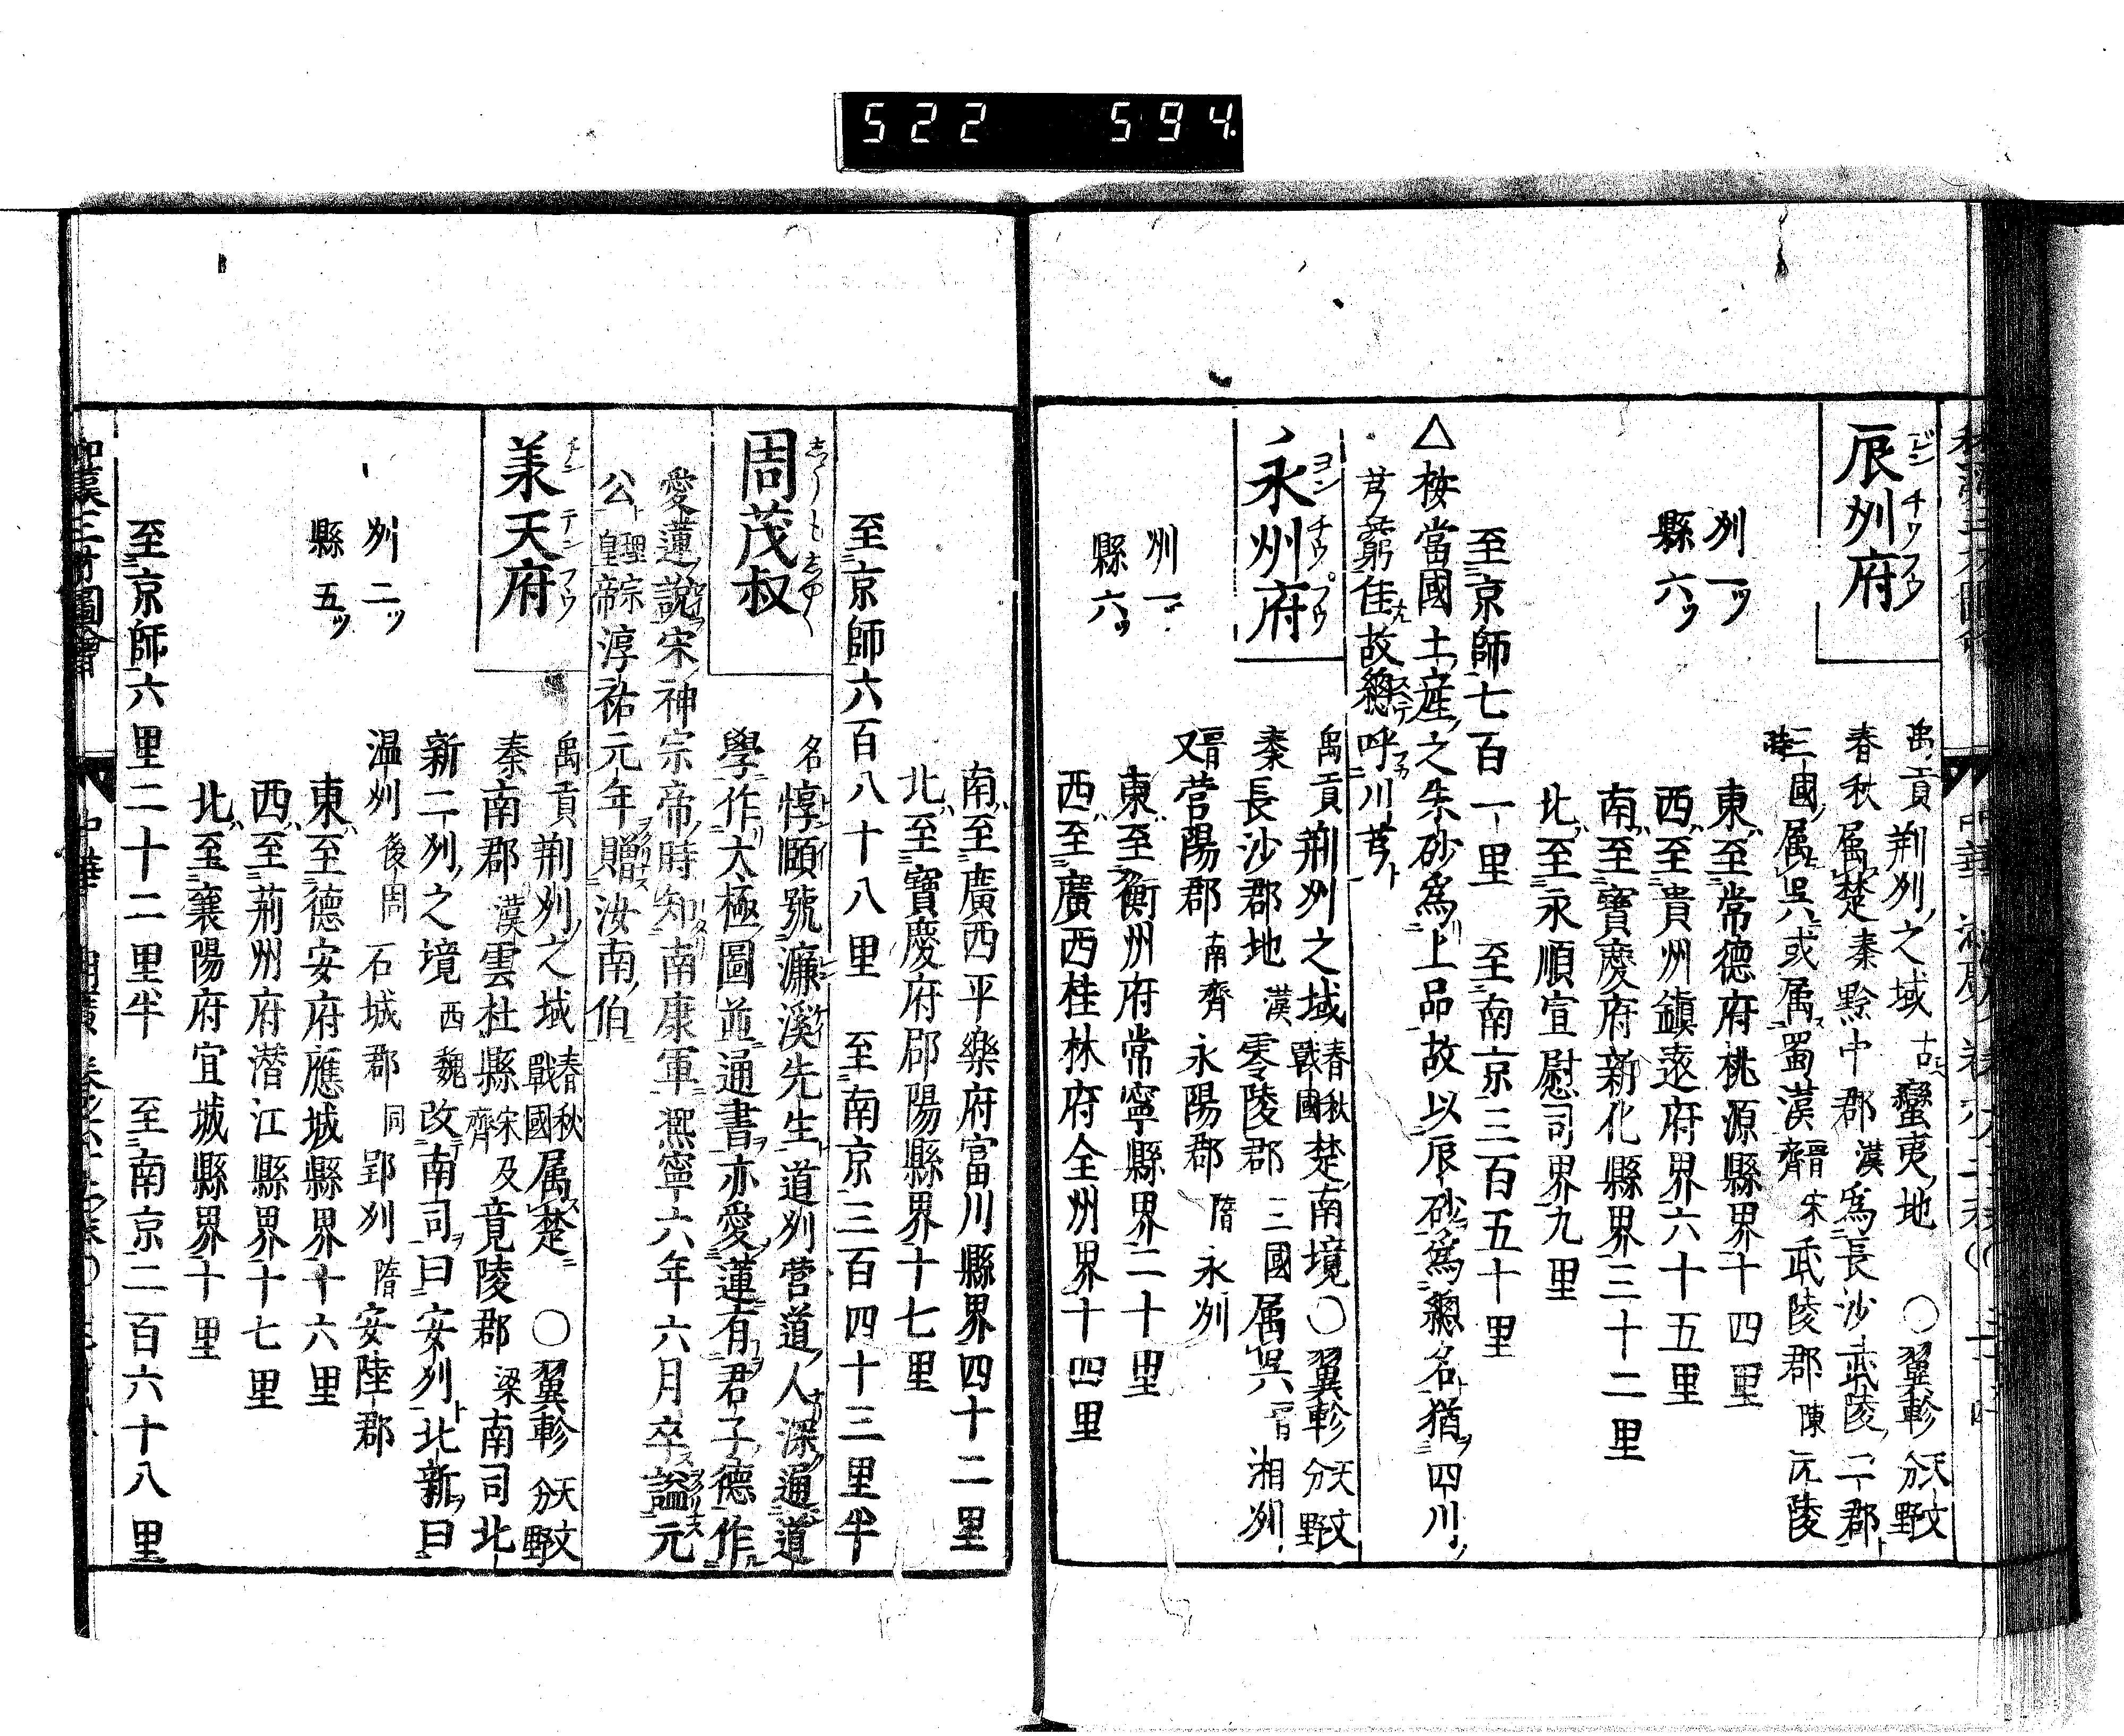 522 594
辰州府
禹貢荆州之域 古蠻夷地 〇翼軫 天文分野
春秋属楚秦黔中郡 漢爲長沙武陵二郡
三國属呉或属蜀漢 晋齊 宋武陵郡 陳沅陵
州一ツ
縣六ツ
東至常德府桃源縣界十四里
西至貴州鎭遠府界六十五里
南至寶慶府新化縣界三十二里
北至永順宣慰司界九里
至京師七百一里 至南京三百五十里
△按當國土産之朱砂爲上品故以辰砂爲總名猶四川
芎藭佳故總呼川芎
永州府
禹貢荆州之域 春秋戰國楚南境〇翼軫 天文分野
秦長沙郡地 漢零陵郡 三國属呉 晋湘州
又晋營陽郡 南齊永陽郡 隋永州
州一
縣六ツ
東至衡州府常寧縣界二十里
西至廣西桂林府全州界十四里
南至廣西平樂府富川縣界四十二里
北至寶慶府邵陽縣界十七里
至京師六百八十八里 至南京三百四十三里半
周茂叔
名惇頤號濂溪先生道州營道人深通道
學作太極圖並通書亦愛蓮有君子德作
愛蓮說宋神宗帝時知南康軍熙寧六年六月卒謚元
公 理宗皇帝淳祐元年贈汝南伯
承天府
禹貢荆州之域 春秋戰國属楚 〇翼軫 天文分野
秦南郡 漢雲杜縣 宋齊及竟陵郡 梁南司北
新二州之境 西魏改南司曰安州北新曰
温州 後周石城郡 同郢州 隋安陸郡
州二ツ
縣五ツ
東至德安府應城縣界十六里
西至荊州府潜江縣界十七里
北至襄陽府宜城縣界十里
至京師六里二十二里半 至南京二百六十八里